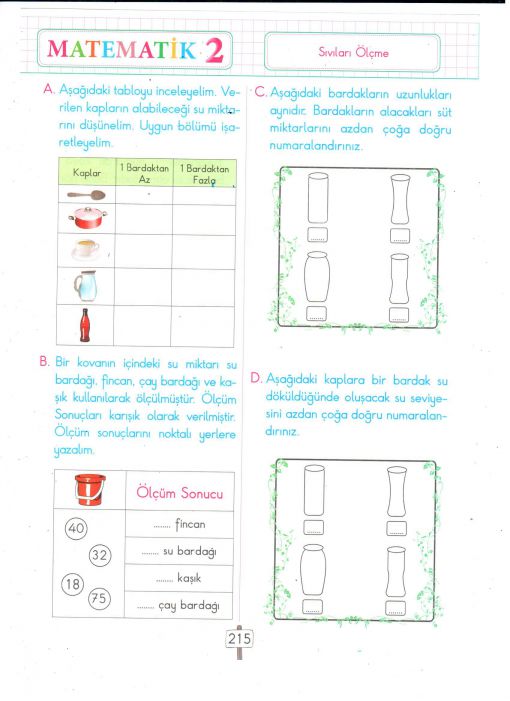 MATEMATİK 2
Sıvıları Ölçme
A. Aşağıdaki tabloyu inceleyelim. Ve-
rilen kapların alabileceği su mikta-
rını düşünelim. Uygun bölümü işa-
retleyelim.
Kaplar
1 Bardaktan
Az
1 Bardaktan
Fazla
B. Bir kovanın içindeki su miktarı su
bardağı, fincan, çay bardağı ve ka-
şık kullanılarak ölçülmüştür. Ölçüm
Sonuçları karışık olarak verilmiştir.
Ölçüm sonuçlarını noktalı yerlere
yazalım.
Ölçüm Sonucu
40
32
18
75
........ fincan
........ su bardağı
........ kaşık
........ çay bardağı
C. Aşağıdaki bardakların uzunlukları
aynıdır. Bardakların alacakları süt
miktarlarını azdan çoğa doğru
numaralandırınız.
......
......
......
......
D. Aşağıdaki kaplara bir bardak su
döküldüğünde oluşacak su seviye-
sini azdan çoğa doğru numaralan-
dırınız.
......
......
......
......
215